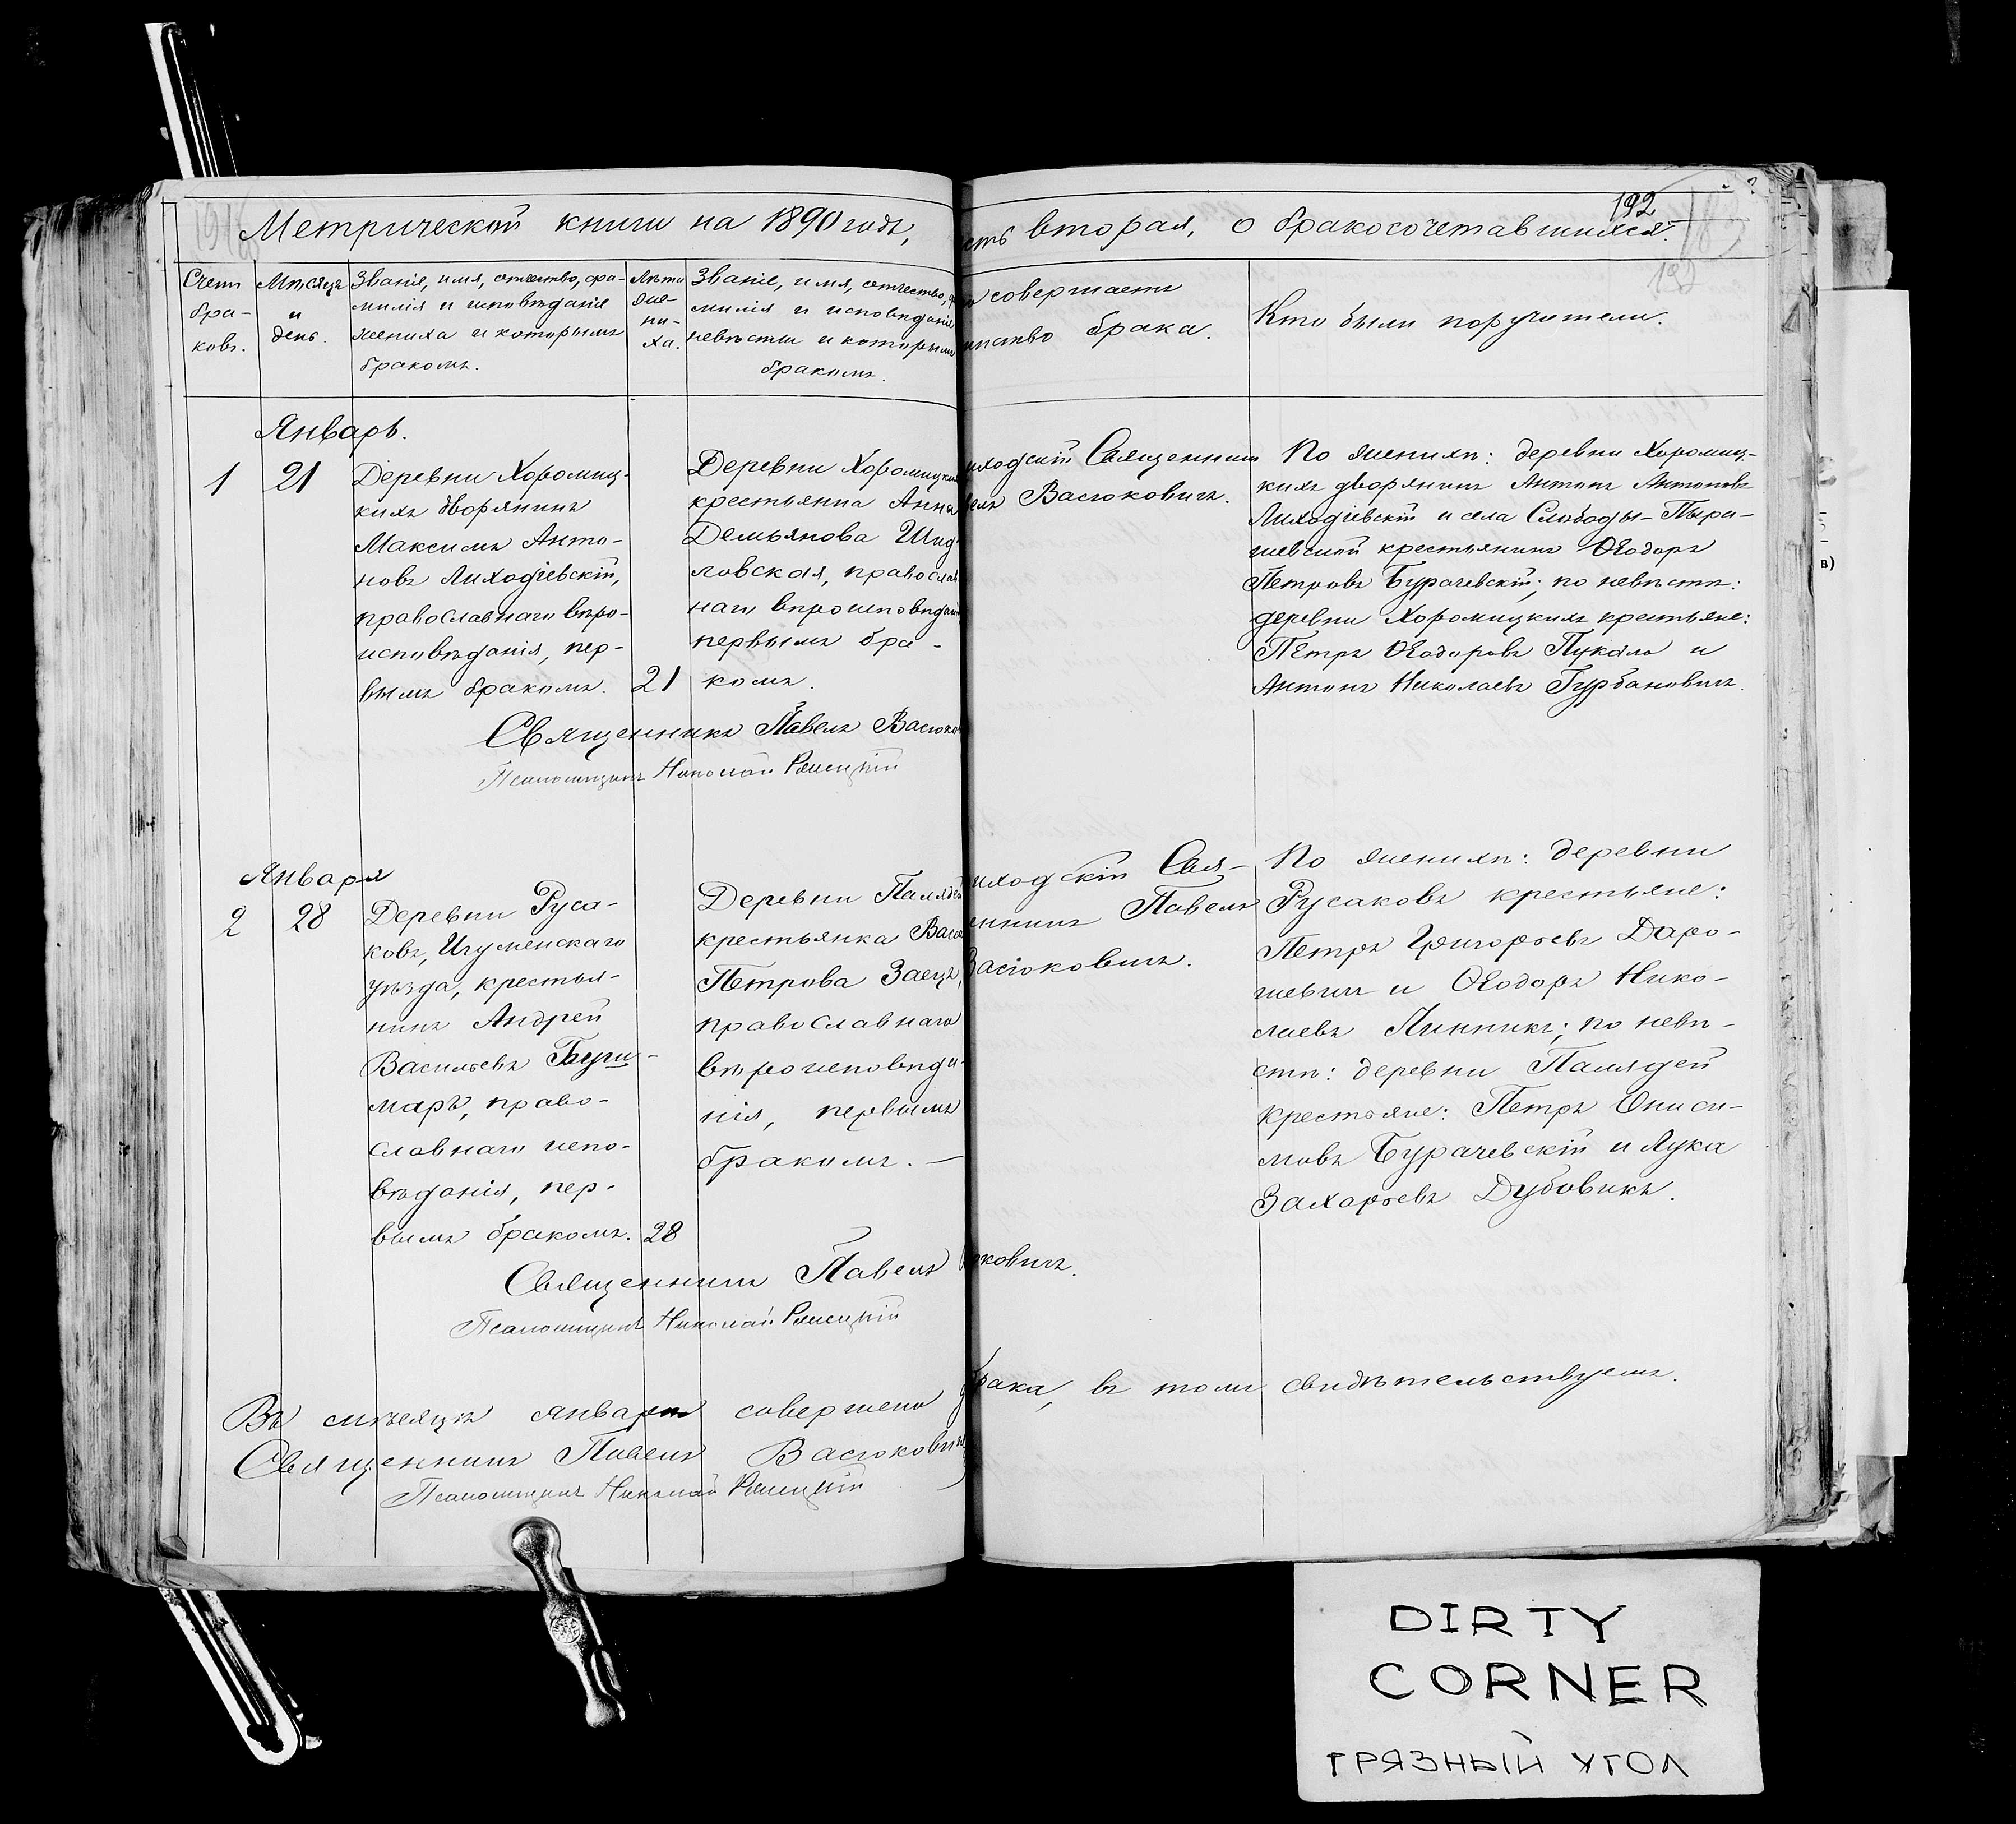 192
Метрической книги на 1890 годъ,
сть вторая, о бракосочетавшихся.
192
Счетъ
бра-
ковъ.
Мѣсяцъ
и
день.
Званіе, имя, отчество, фа-
милія и исповѣданіе
жениха и которымъ
бракомъ.
Лѣта
же-
ни-
ха.
Званіе, имя, отчество, ф
милія и исповѣданіе
невѣсты и которымъ
бракомъ.
совершалъ
инство брака.
Кто были поручители.
Январь.
1
21
Деревни Хоромиц-
кихъ дворянинъ
Максимъ Анто-
новъ Лиходіевскій,
православнаго вѣро-
исповѣданія, пер-
вымъ бракомъ.
21
Деревни Хоромицкихъ
крестьянка Анна
Демьянова Шид-
ловская, православ
наго вѣроисповѣданія
первымъ бра-
комъ.
иходскій Священникъ
елъ Васюковичъ.
По женихѣ: деревни Хоромиц-
кихъ дворянинъ Антонъ Антоновъ
Лиходіевскій и села Слободы-Пыра-
шевской крестьянинъ Ѳеодоръ
Петровъ Бурачевскій; по невѣстѣ:
деревни Хоромицкихъ крестьяне:
Петръ Ѳеодоровъ Пукало и
Антонъ Николаевъ Гурбановичъ.
Священникъ Павелъ Васюко
Псаломщикъ Николай
Января
2
28
Деревни Руса-
ковъ, Игуменскаго
уѣзда, крестья-
нинъ Андрей
Васильевъ
маръ, право-
славнаго испо-
вѣданія, пер-
вымъ бракомъ.
28
Деревни Палядей
крестьянка Васи
Петрова Заецъ,
православнаго
вѣроисповѣда-
нія, первымъ
бракомъ. —
иходскій Свя-
енникъ Павелъ
Васюковичъ.
По женихѣ: деревни
Русаковъ крестьяне:
Петръ Григорьевъ Даро-
шевичъ и Ѳеодоръ Нико-
лаевъ Линникъ; по невѣ-
стѣ: деревни Палядей
крестьяне: Петръ Ониси-
мовъ Бурачевскій и Лука
Захарьевъ Дубовикъ.
Священникъ Павелъ
юковичъ.
Псаломщикъ Николай
Въ мѣсяцѣ январѣ совершено
брака, въ томъ свидѣтельствуемъ.
Священникъ Павелъ Васюковичъ
Псаломщикъ Николай
в)
DIRTY
CORNER
ГРЯЗНЫЙ УГОЛ